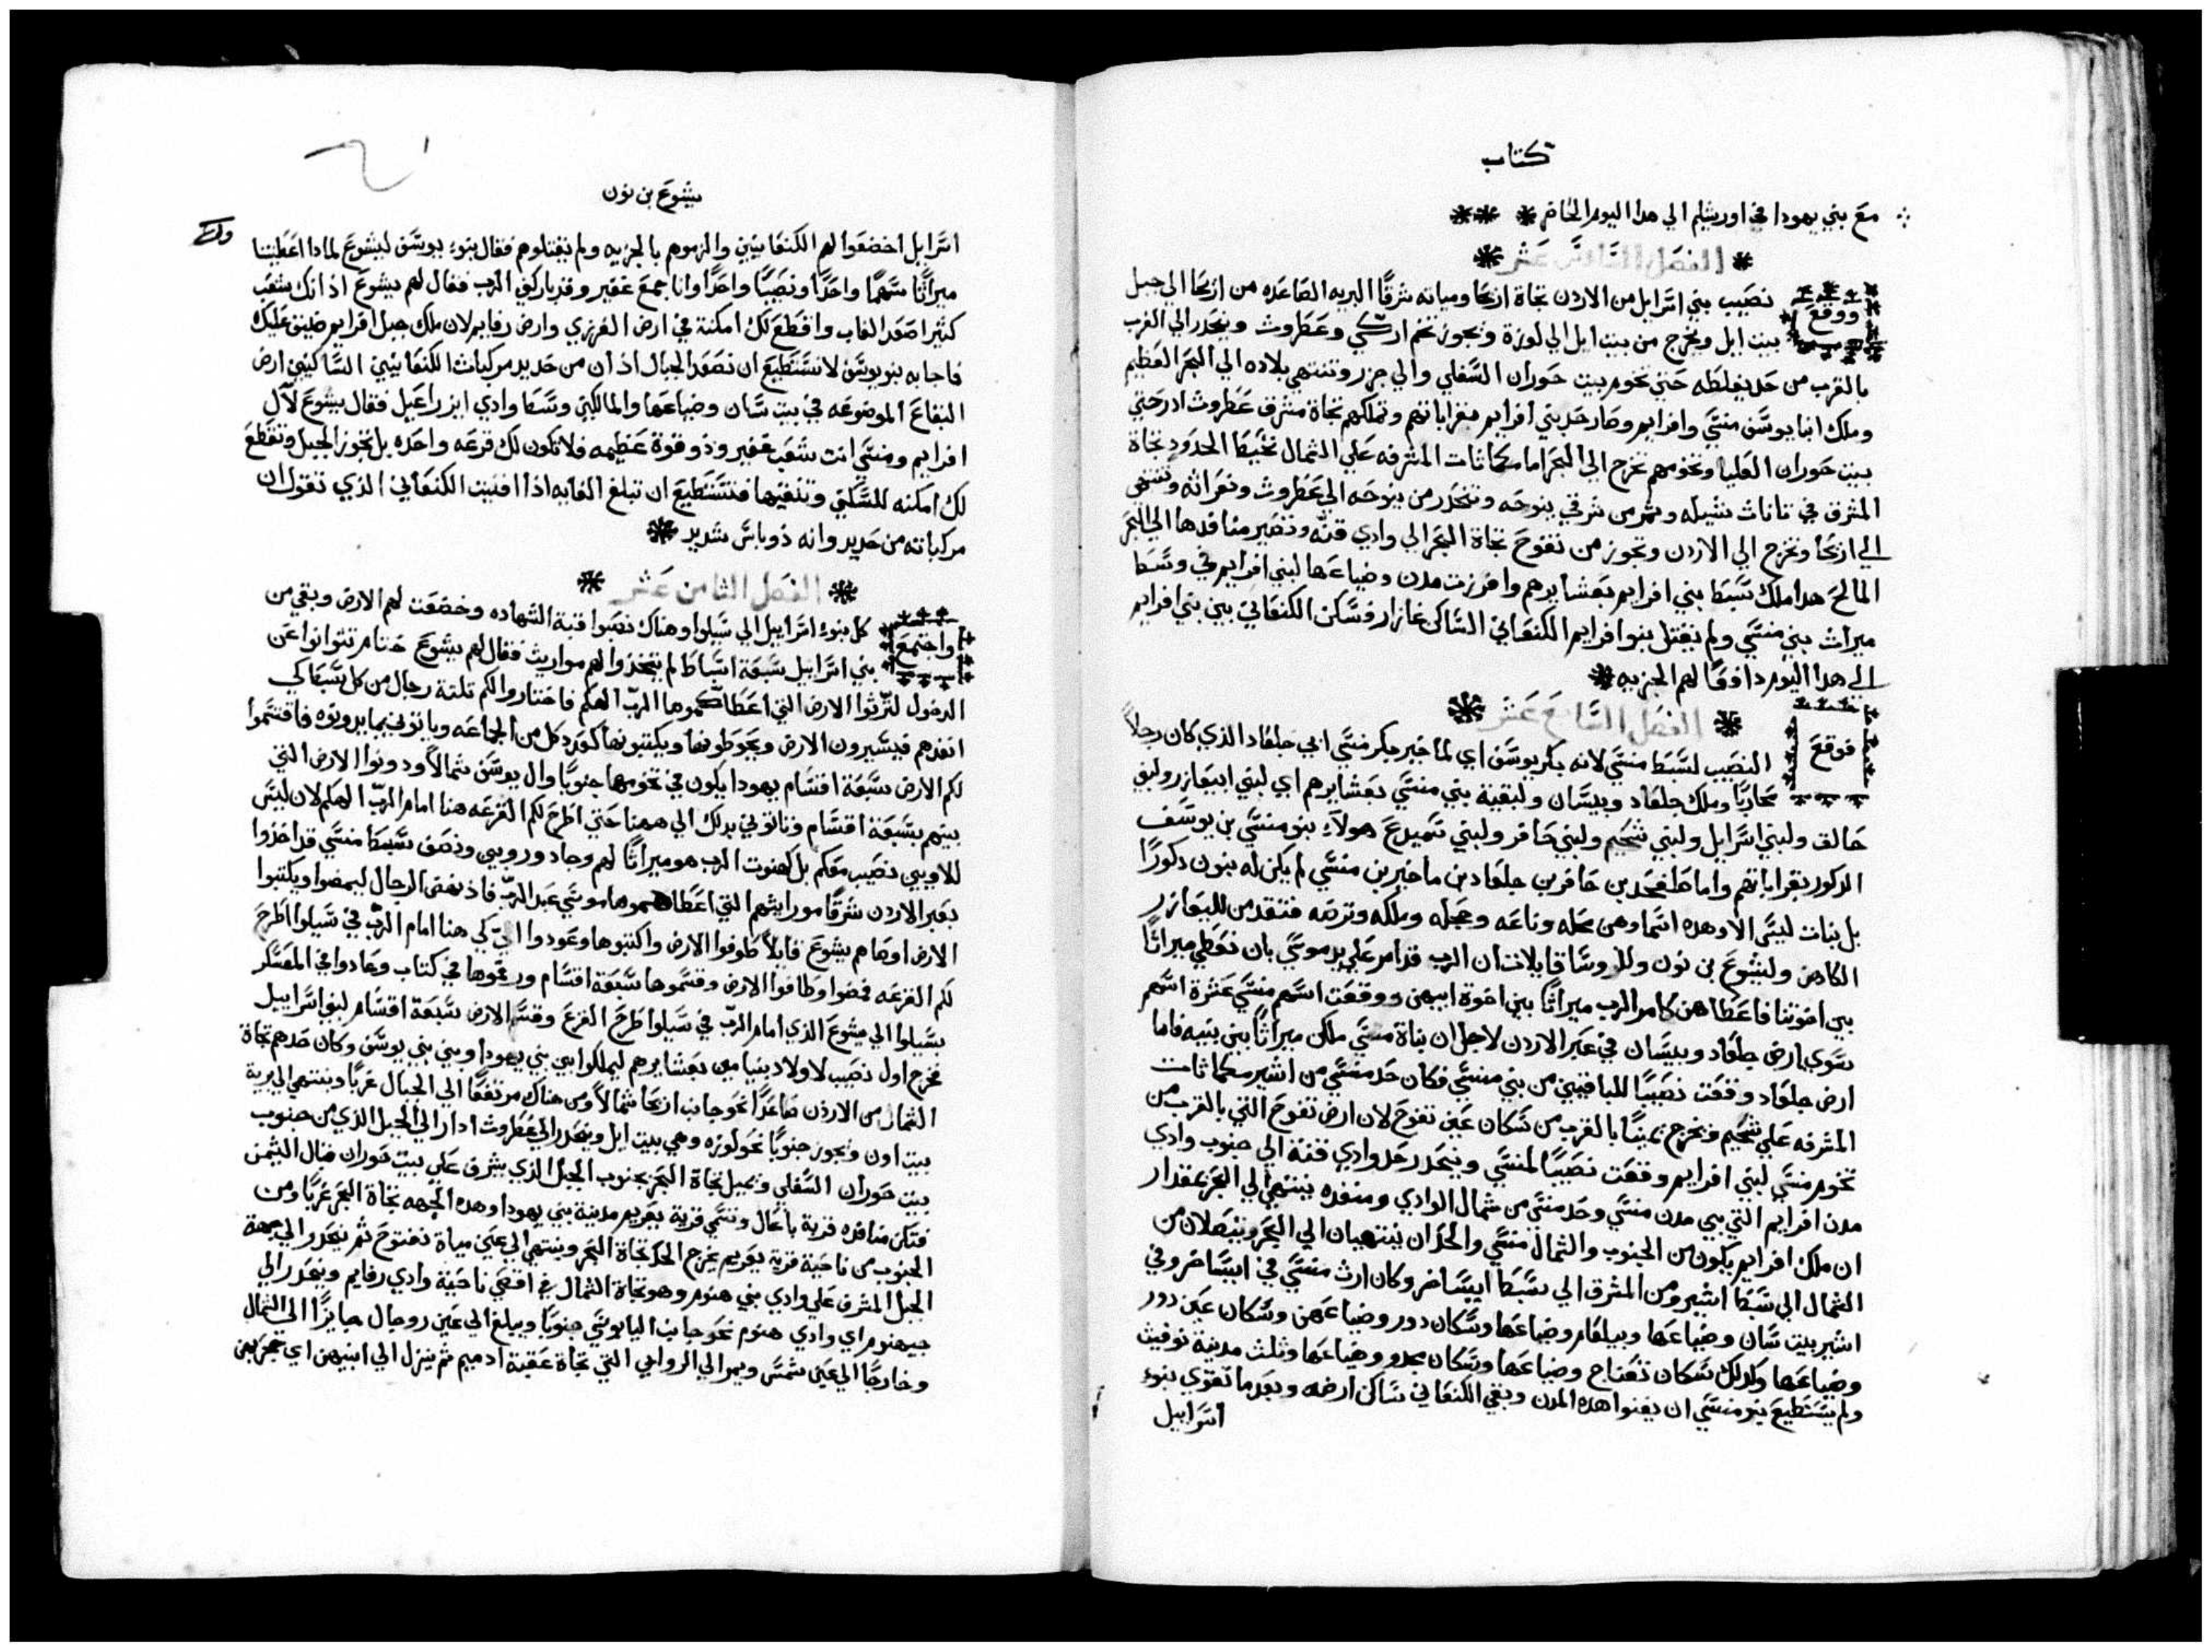 كتاب
مع بني يهودا في اورشليم الي هدا اليوم الحاضر
الفصل السادس عشر
ووقع نصيب بني اسرايل من الاردن تجاة اريحا ومياته شرقًا البريه الصاعده من اريحا الي جبل
بيت ايل ويخرج من بيت ايل الي لوزة ويجوز تخم اركي وعطروث وينحدر الي الغرب
بالقرب من حد يفلطه حتي تخوم بيت حوران السفلي والي جزر وتنتهي بلاده الي البحر العظيم
وملك ابنا يوسف منسي وافرايم وصار حد بني افرايم بقراباتهم وتملكهم تجاة مشرق عطروث ادر حتي
بيت حوران العليا وتخومهم تخرج الي البحر اما مكماثات المشرفه علي الشمال تخيط الحدود تجاة
المشرق في تاناث شيله وتمر من شرقي ينوحه وتنحدر من ينوحه الي عطروث ونعراثه وتنتهي
الي اريحا وتخرج الي الاردن وتجوز من تفوح تجاة البحر الي وادي قنه وتصير منافدها الي البحر
المالح هدا ملك سبط بني افرايم بعشايرهم وافرزت مدن وضياعها لبني افرايم في وسط
ميراث بني منسي ولم يقتل بنوا افرايم الكنعاني الساكن غازار وسكن الكنعاني بين بني افرايم
الي هدا اليوم دافعًا لهم الجزيه
الفصل السابع عشر
فوقع النصيب لسبط منسي لانه بكر يوسف اي لماخير بكر منسي ابي جلعاد الذي كان رجلاً
محاربًا وملك جلعاد وبيسان ولبقية بني منسي بعشايرهم اي لبني ابيعازر ولبني
حالق ولبني اسرايل ولبني شخيم ولبني حافر ولبني سميدع هولآء بنو منسي بن يوسف
الدكور بقراباتهم واما صلفحد بن حافر بن جلعاد بن ماخير بن منسي لم يكن له بنون دكورًا
بل بنات ليس الا وهده اسماوهن محله وناعه وحجله وملكه وترصه فتقدمن لليعازر
الكاهن وليشوع بن نون وللروسا قايلات ان الرب قد امر علي يد موسي بان نعطي ميراثًا
بين اخوتنا فاعطاهن كامر الرب ميراثًا بين اخوة ابيهن ووقعت اسهم منسي عشرة اسهم
سوي ارض جلعاد وبيسان في عبر الاردن لاجل ان بناة منسي ملكن ميراثًا بين بنيه فاما
ارض جلعاد وقعت نصيبًا للباقيين من بني منسي فكان حد منسي من اشير مكماثات
المشرفه علي شخيم ويخرج يمينًا بالقرب من سكان عين تفوح لان ارض تفوح التي بالقرب من
تخوم منسي لبني افرايم وقعت نصيبًا لمنسي وينحدر حد وادي قنة الي جنوب وادي
مدن افرايم التي بين مدن منسي وحد منسي من شمال الوادي ومنفده ينتهي الي البحر بمقدار
ان ملك افرايم يكون من الجنوب والشمال منسي والحدان ينتهيان الي البحر ويتصلان من
الشمال الي سبط اشير ومن المشرق الي سبط ايساخر وكان ارث منسي في ايساخر وفي
اشير بيت سان وضياعها ويبلعام وضياعها وسكان دور وضياعهن وسكان عين دور
وضياعها وكدلك سكان تعناح وضياعها وسكان مجدو وضياعها وثلث مدينة نوفيث
ولم يستطيع بنو منسي ان يفنوا هده المدن وبقي الكنعاني ساكن ارضه وبعد ما تقوي بنوء
اسراييل
يشوع بن نون
اسرايل اخضعوا لهم الكنعانيين والزموهم بالجزيه ولم يقتلوهم فقال بنوء يوسف ليشوع لمادا اعطيتنا
ميراثًا سهمًا واحدًا ونصيبًا واحدًا وانا جمع غفير وقد باركني الرب فقال لهم يشوع اذ انك شعب
كثير اصعد الغاب واقطع لك امكنة في ارض الفرزي وارض رفايم لان ملك جبل افرايم ضيق عليك
فاجابه بنو يوسف لا نستطيع ان نصعد الجبال اذ ان من حديد مركبات الكنعانيين الساكنين ارض
البقاع الموضوعه في بيت سان وضياعها والمالكين وسط وادي ايزراعيل فقال يشوع لآل
افرايم ومنسي انت شعب غفير وذو قوة عظيمه فلا تكون لك قرعه واحده بل تجوز الجبل وتقطع
لك امكنه للسكني وتنقيها فتستطيع ان تبلغ الغايه اذا افنيت الكنعاني الذي تقول ان
مركباته من حديد وانه ذو باس شديد
الفصل الثامن عشر
واجتمع كل بنوء اسراييل الي شيلوا وهناك نصبوا قبة الشهاده وخضعت لهم الارض وبقي من
بني اسراييل سبعة اسباط لم يتخذوا لهم مواريث فقال لهم يشوع حتام تتوانوا عن
الدخول لترثوا الارض التي اعطاكموها الرب الهكم فاختاروا لكم تلتة رجال من كل سبط كي
انفدهم فيسيرون الارض ويحوطونها ويكتبونها كعدد كل من الجماعه وياتوني بما يرويوه فاقتسموا
لكم الارض سبعة اقسام يهودا يكون في تخومها جنوبًا وال يوسف شمالاً ودونوا الارض التي
بينهم بسبعة اقسام وتاتوني بدلك الي ههنا حتي اطرح لكم القرعه هنا امام الرب الهكم لان ليس
للاويين نصيب معكم بل كهنوت الرب هو ميراثًا لهم وجاد وروبين ونصف سبط منسي قد اخذوا
بعبر الاردن شرقًا مورايثهم التي اعطاهموها موسي عبد الرب فاذ نهض الرجال ليمضوا ويكتبوا
الارض اوصاهم يشوع قايلاً طوفوا الارض واكتبوها وعودوا الي كي هنا امام الرب في شيلوا اطرح
لكم القرعه فمضوا وطافوا الارض وقسموها سبعة اقسام ورقموها في كتاب وعادوا في المعسكر
بشيلوا الي يشوع الذي امام الرب في شيلوا طرح القرع وقسم الارض سبعة اقسام لبني اسراييل
فخرج اول نصيب لاولاد بنيامين بعشايرهم ليملكوا بين بني يهودا وبين بني يوسف وكان حدهم تجاة
الشمال من الاردن صاعدًا نحو جانب اريحا شمالاً ومن هناك مرتفعًا الي الجبال غربًا وينتهي الي برية
بيت اون ويجوز جنوبًا نحو لوزه وهي بيت ايل وينحدر الي عطروث ادار الي الجبل الذي من جنوب
بيت حوران السفلي ويميل تجاة البحر بجنوب الجبل الذي يشرف علي بيت حوران شمال اليمن
فتكن منافده قرية باعال وتسمي قرية يعريم مدينة بني يهودا وهده الجهه تجاة البحر غربًا ومن
الجنوب من ناحية قرية يعريم يخرج الحد تجاة البحر وينتهي الي عين مياة تفتوح ثم ينحدر الي جهة
الجبل المشرف علي وادي بني هنوم وهو تجاة الشمال في اقصي ناحية وادي رفايم وينحدر الي
جيهنوم اي وادي هنوم نحو جانب اليابوسي جنوبًا ويبلغ الي عين روجال جايزًا الي الشمال
وخارجًا الي عين شمس ويمر الي الروابي التي تجاة عقبة ادميم ثم ينزل الي ابنيهن اي حجر بهن